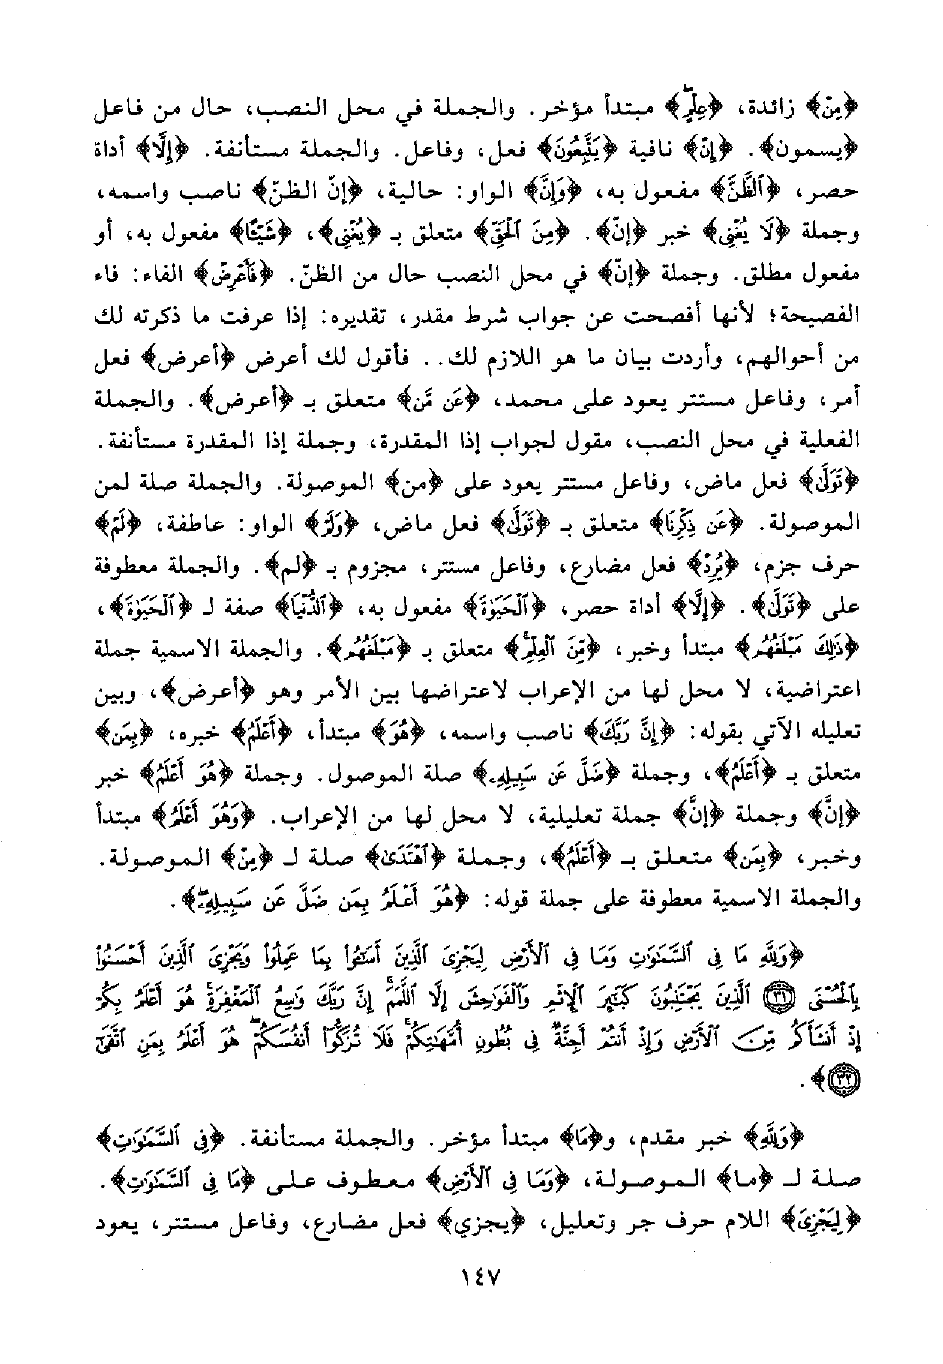 ﴿مِنْ﴾ زائدة، ﴿عِلْمٍ﴾ مبتدأ مؤخر. والجملة في محل النصب، حال من فاعل
﴿يسمون﴾. ﴿إِنْ﴾ نافية ﴿يَتَّبِعُونَ﴾ فعل، وفاعل. والجملة مستأنفة. ﴿إِلَّا﴾ أداة
حصر، ﴿الظَّنَّ﴾ مفعول به، ﴿وَإِنَّ﴾ الواو: حالية، ﴿إِنّ الظنّ﴾ ناصب واسمه،
وجملة ﴿لَا يُغْنِي﴾ خبر ﴿إنّ﴾. ﴿مِنَ الْحَقِّ﴾ متعلق بـ ﴿يُغْنِي﴾، ﴿شَيْئًا﴾ مفعول به، أو
مفعول مطلق. وجملة ﴿إنّ﴾ في محل النصب حال من الظنّ. ﴿فَأَعْرِضْ﴾ الفاء: فاء
الفصيحة؛ لأنها أفصحت عن جواب شرط مقدر، تقديره: إذا عرفت ما ذكرته لك
من أحوالهم، وأردت بيان ما هو اللازم لك.. فأقول لك أعرض ﴿أعرض﴾ فعل
أمر، وفاعل مستتر يعود على محمد، ﴿عَن مَّن﴾ متعلق بـ ﴿أعرض﴾. والجملة
الفعلية في محل النصب، مقول لجواب إذا المقدرة، وجملة إذا المقدرة مستأنفة.
﴿تَوَلَّىٰ﴾ فعل ماض، وفاعل مستتر يعود على ﴿من﴾ الموصولة. والجملة صلة لمن
الموصولة. ﴿عَن ذِكْرِنَا﴾ متعلق بـ ﴿تَوَلَّىٰ﴾ فعل ماض، ﴿وَلَمْ﴾ الواو: عاطفة، ﴿لَمْ﴾
حرف جزم، ﴿يُرِدْ﴾ فعل مضارع، وفاعل مستتر، مجزوم بـ ﴿لم﴾. والجملة معطوفة
على ﴿تَوَلَّىٰ﴾. ﴿إِلَّا﴾ أداة حصر، ﴿الْحَيَوٰةَ﴾ مفعول به، ﴿الدُّنْيَا﴾ صفة لـ ﴿الْحَيَوٰةَ﴾،
﴿ذَٰلِكَ مَبْلَغُهُم﴾ مبتدأ وخبر، ﴿مِّنَ الْعِلْمِ﴾ متعلق بـ ﴿مَبْلَغُهُم﴾. والجملة الاسمية جملة
اعتراضية، لا محل لها من الإعراب لاعتراضها بين الأمر وهو ﴿أعرض﴾، وبين
تعليله الآتي بقوله: ﴿إِنَّ رَبَّكَ﴾ ناصب واسمه، ﴿هُوَ﴾ مبتدأ، ﴿أَعْلَمُ﴾ خبره، ﴿بِمَن﴾
متعلق بـ ﴿أَعْلَمُ﴾، وجملة ﴿ضَلَّ عَن سَبِيلِهِ﴾ صلة الموصول. وجملة ﴿هُوَ أَعْلَمُ﴾ خبر
﴿إِنَّ﴾ وجملة ﴿إِنَّ﴾ جملة تعليلية، لا محل لها من الإعراب. ﴿وَهُوَ أَعْلَمُ﴾ مبتدأ
وخبر، ﴿بِمَن﴾ متعلق بـ ﴿أَعْلَمُ﴾، وجملة ﴿اهْتَدَىٰ﴾ صلة لـ ﴿مِن﴾ الموصولة.
والجملة الاسمية معطوفة على جملة قوله: ﴿هُوَ أَعْلَمُ بِمَن ضَلَّ عَن سَبِيلِهِ﴾.
﴿وَلِلَّهِ مَا فِي السَّمَٰوَٰتِ وَمَا فِي الْأَرْضِ لِيَجْزِيَ الَّذِينَ أَسَٰٓـُٔوا بِمَا عَمِلُوا وَيَجْزِيَ الَّذِينَ أَحْسَنُوا
بِالْحُسْنَى ٣١ الَّذِينَ يَجْتَنِبُونَ كَبَٰٓئِرَ الْإِثْمِ وَالْفَوَٰحِشَ إِلَّا اللَّمَمَ إِنَّ رَبَّكَ وَٰسِعُ الْمَغْفِرَةِ هُوَ أَعْلَمُ بِكُمْ
إِذْ أَنشَأَكُم مِّنَ الْأَرْضِ وَإِذْ أَنتُمْ أَجِنَّةٌ فِي بُطُونِ أُمَّهَٰتِكُمْ فَلَا تُزَكُّوا أَنفُسَكُمْ هُوَ أَعْلَمُ بِمَنِ اتَّقَىٰ
٣٢﴾.
﴿وَلِلَّهِ﴾ خبر مقدم، و﴿مَا﴾ مبتدأ مؤخر. والجملة مستأنفة. ﴿فِي السَّمَٰوَٰتِ﴾
صلة لـ ﴿ما﴾ الموصولة، ﴿وَمَا فِي الْأَرْضِ﴾ معطوف على ﴿مَا فِي السَّمَٰوَٰتِ﴾.
﴿لِيَجْزِيَ﴾ اللام حرف جر وتعليل، ﴿يجزي﴾ فعل مضارع، وفاعل مستتر، يعود
١٤٧